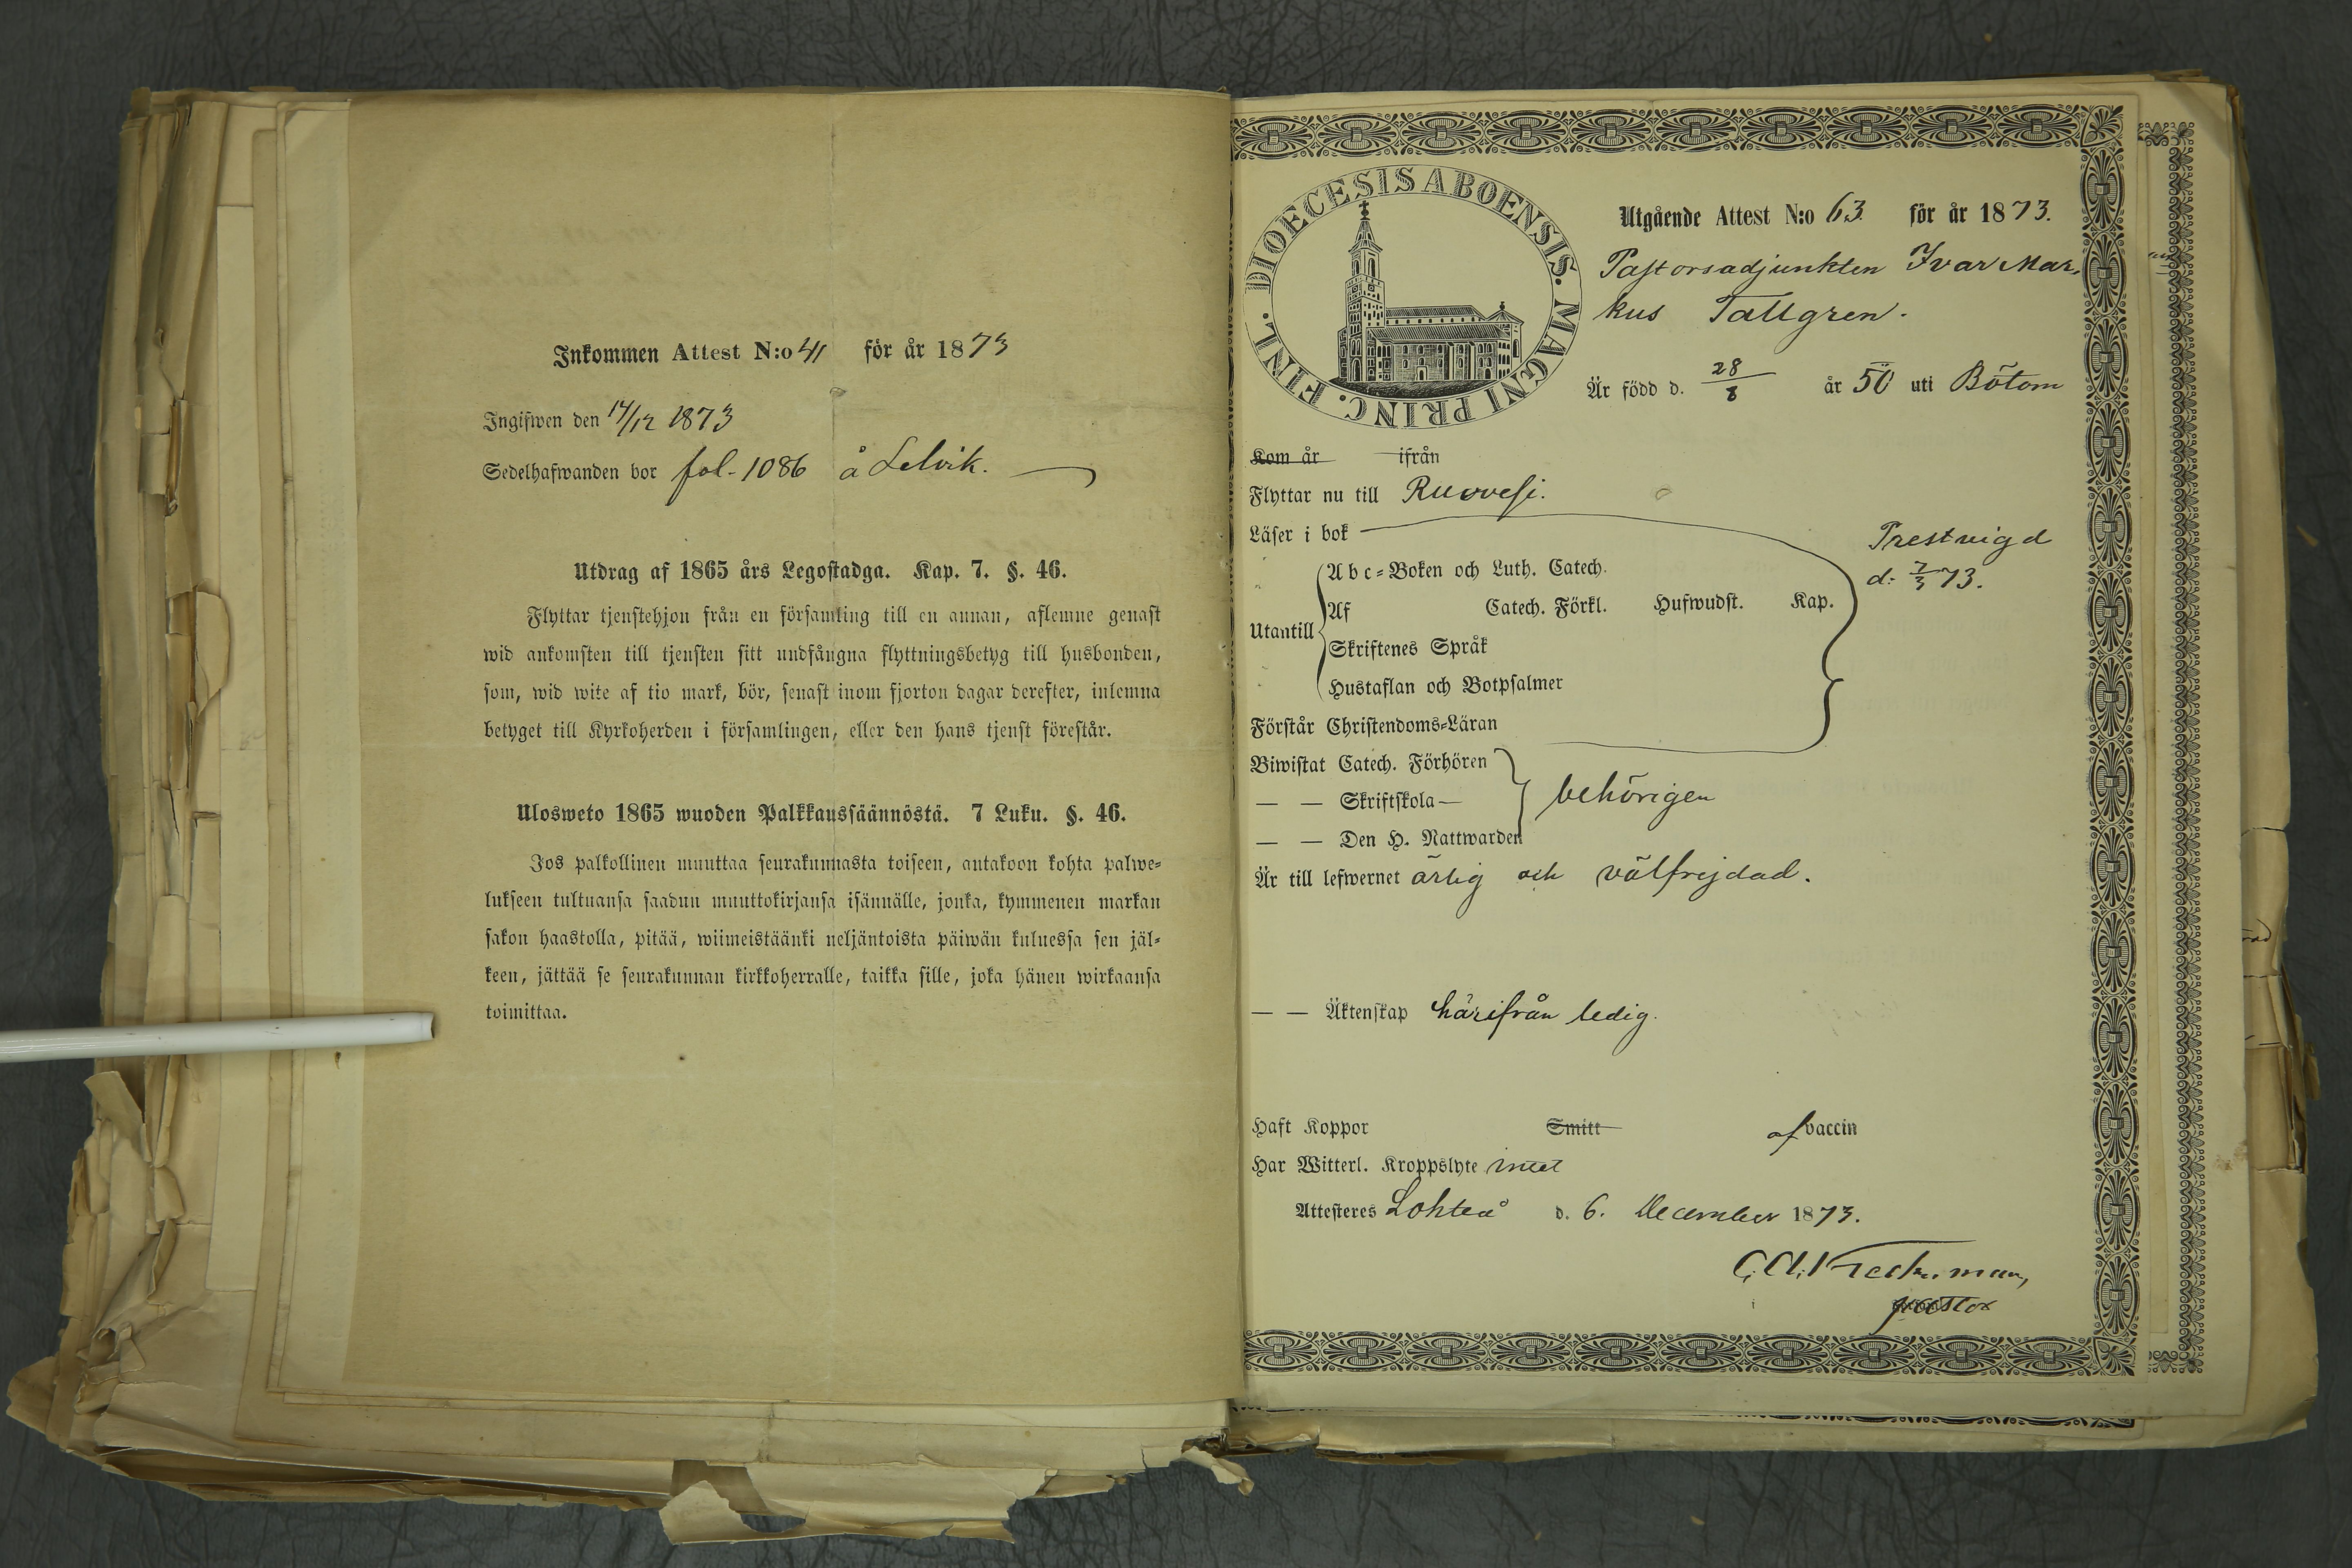 Inkommen Attest N:o 41 för år 1873
Ingifwen den 14/12 1873
Sedelhafwanden bor fol. 1086 å Lelvik.
Utdrag af 1865 års Legostadga. Kap. 7. §. 46.
Flyttar tjenstehjon från en församling till en annan, aflemne genast
wid ankomsten till tjensten sitt undfångna flyttningsbetyg till husbonden,
som, wid wite af tio mark, bör, senast inom fjorton dagar derefter, inlemna
betyget till Kyrkoherden i församlingen, eller den hans tjenst förestår.
Ulosweto 1865 wuoden Palkkaussäännöstä. 7 Luku. §. 46.
Jos palkollinen muuttaa seurakunnasta toiseen, antakoon kohta palwe-
lukseen tultuansa saadun muuttokirjansa isännälle, jonka, kymmenen markan
sakon haastolla, pitää, wiimeistäänki neljäntoista päiwän kuluessa sen jäl-
keen, jättää se seurakunnan kirkkoherralle, taikka sille, joka hänen wirkaansa
toimittaa.
DIOECESIS ABOENSIS. MAGNI PRINC. FINL.
Utgående Attest N:o 63 för år 1873.
Pastorsadjunkten Ivar Mar-
kus Tallgren.
Är född d. 28/8 år 50 uti Bötom
Kom år ifrån
Flyttar nu till Ruovesi.
Läser i bok
Prestvigd
d. 7/3 73.
Utantill
Abc-Boken och Luth. Catech.
Af Catech. Förkl. Hufwudst. Kap.
Skriftenes Språk
Hustaflan och Botpsalmer
Förstår Christendoms-Läran
Biwistat Catech. Förhören
— — Skriftskola — behörigen
— — Den H. Nattwarden
Är till lefwernet ärlig och välfrejdad.
— — Äktenskap härifrån ledig.
Haft Koppor Smitt af vaccin
Har Witterl. Kroppslyte intet
Attesteres Lohteå d. 6. December 1873.
pastor